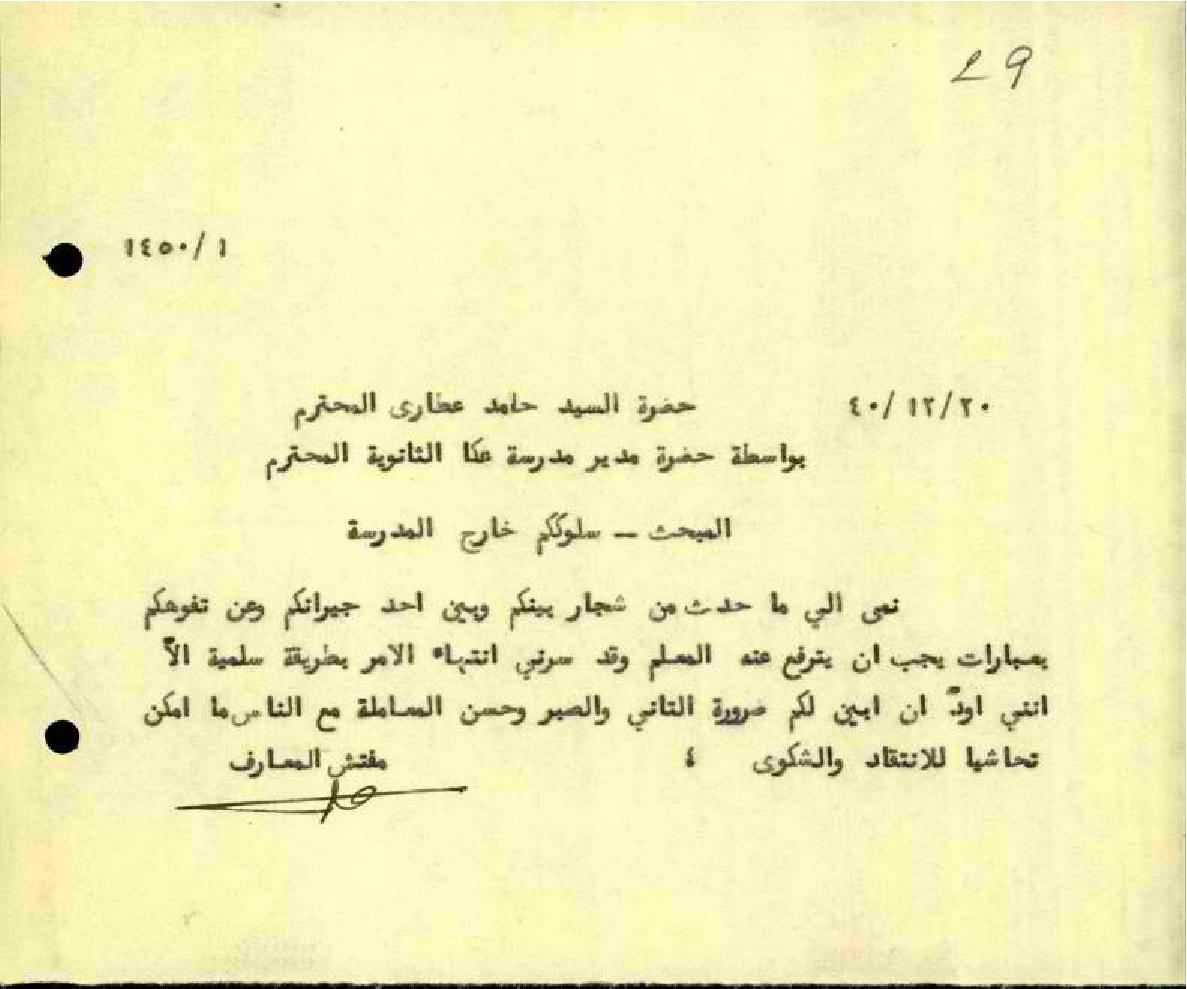 29
١٤٥٠/ ١
٤٠/ ١٢/ ٢٠
حضرة السيد حامد عطارى المحترم
بواسطة حضرة مدير مدرسة عكا الثانوية المحترم
المبحث – سلوككم خارج المدرسة
نمى الي ما حدث من شجار بينكم وبين احد جيرانكم وعن تفوهكم
بعبارات يجب ان يترفع عنه المعلم وقد سرني انتهاء الامر بطريقة سلمية الاّ
انني اودّ ان ابين لكم ضرورة التاني والصبر وحسن المعاملة مع الناس ما امكن
تحاشيا للانتقاد والشكوى ؛
مفتش المعارف